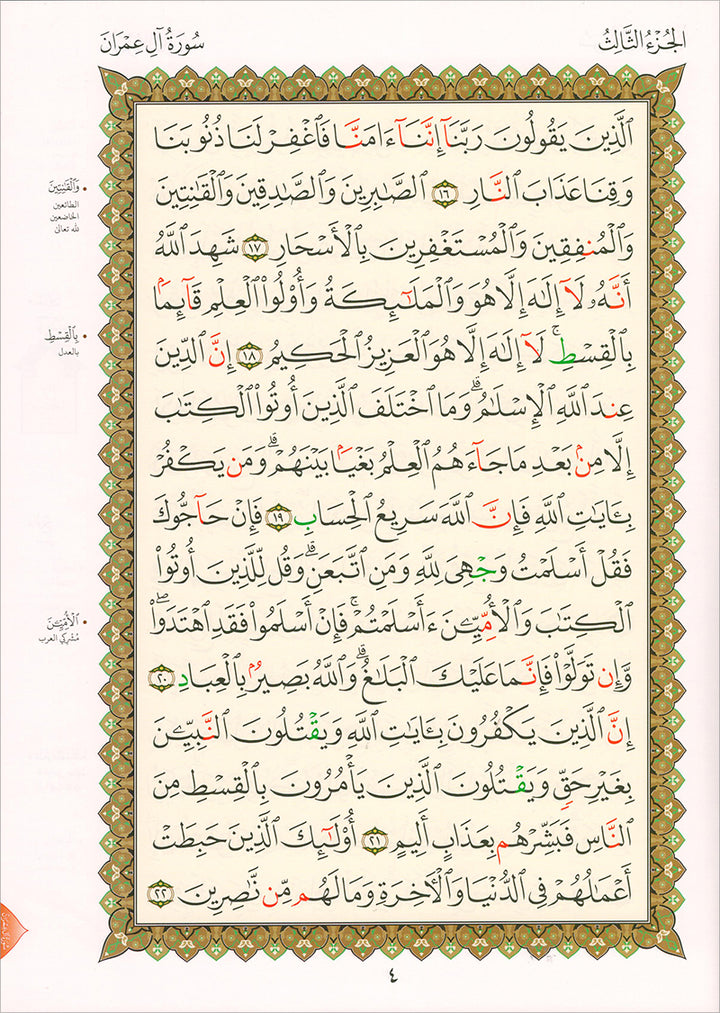 الجُزْءُ الثَّالِثُ
سُورَةُ آلِ عِمْرَانَ
ٱلَّذِينَ يَقُولُونَ رَبَّنَآ إِنَّنَآ ءَامَنَّا فَٱغْفِرْ لَنَا ذُنُوبَنَا
وَقِنَا عَذَابَ ٱلنَّارِ ١٦ ٱلصَّٰبِرِينَ وَٱلصَّٰدِقِينَ وَٱلْقَٰنِتِينَ
وَٱلْمُنفِقِينَ وَٱلْمُسْتَغْفِرِينَ بِٱلْأَسْحَارِ ١٧ شَهِدَ ٱللَّهُ
أَنَّهُۥ لَآ إِلَٰهَ إِلَّا هُوَ وَٱلْمَلَٰٓئِكَةُ وَأُو۟لُوا۟ ٱلْعِلْمِ قَآئِمَۢا
بِٱلْقِسْطِ ۚ لَآ إِلَٰهَ إِلَّا هُوَ ٱلْعَزِيزُ ٱلْحَكِيمُ ١٨ إِنَّ ٱلدِّينَ
عِندَ ٱللَّهِ ٱلْإِسْلَٰمُ ۗ وَمَا ٱخْتَلَفَ ٱلَّذِينَ أُوتُوا۟ ٱلْكِتَٰبَ
إِلَّا مِنۢ بَعْدِ مَا جَآءَهُمُ ٱلْعِلْمُ بَغْيَۢا بَيْنَهُمْ ۗ وَمَن يَكْفُرْ
بِـَٔايَٰتِ ٱللَّهِ فَإِنَّ ٱللَّهَ سَرِيعُ ٱلْحِسَابِ ١٩ فَإِنْ حَآجُّوكَ
فَقُلْ أَسْلَمْتُ وَجْهِىَ لِلَّهِ وَمَنِ ٱتَّبَعَنِ ۗ وَقُل لِّلَّذِينَ أُوتُوا۟
ٱلْكِتَٰبَ وَٱلْأُمِّيِّـۧنَ ءَأَسْلَمْتُمْ ۚ فَإِنْ أَسْلَمُوا۟ فَقَدِ ٱهْتَدَوا۟ ۖ
وَّإِن تَوَلَّوْا۟ فَإِنَّمَا عَلَيْكَ ٱلْبَلَٰغُ ۗ وَٱللَّهُ بَصِيرُۢ بِٱلْعِبَادِ ٢٠
إِنَّ ٱلَّذِينَ يَكْفُرُونَ بِـَٔايَٰتِ ٱللَّهِ وَيَقْتُلُونَ ٱلنَّبِيِّـۧنَ
بِغَيْرِ حَقٍّ وَيَقْتُلُونَ ٱلَّذِينَ يَأْمُرُونَ بِٱلْقِسْطِ مِنَ
ٱلنَّاسِ فَبَشِّرْهُم بِعَذَابٍ أَلِيمٍ ٢١ أُو۟لَٰٓئِكَ ٱلَّذِينَ حَبِطَتْ
أَعْمَٰلُهُمْ فِى ٱلدُّنْيَا وَٱلْءَاخِرَةِ وَمَا لَهُم مِّن نَّٰصِرِينَ ٢٢
• وَٱلْقَٰنِتِينَ
الطائعين
الخاضعين
لله تعالى
• بِٱلْقِسْطِ
بالعدل
• ٱلْأُمِّيِّـۧنَ
مُشركي العرب
٤